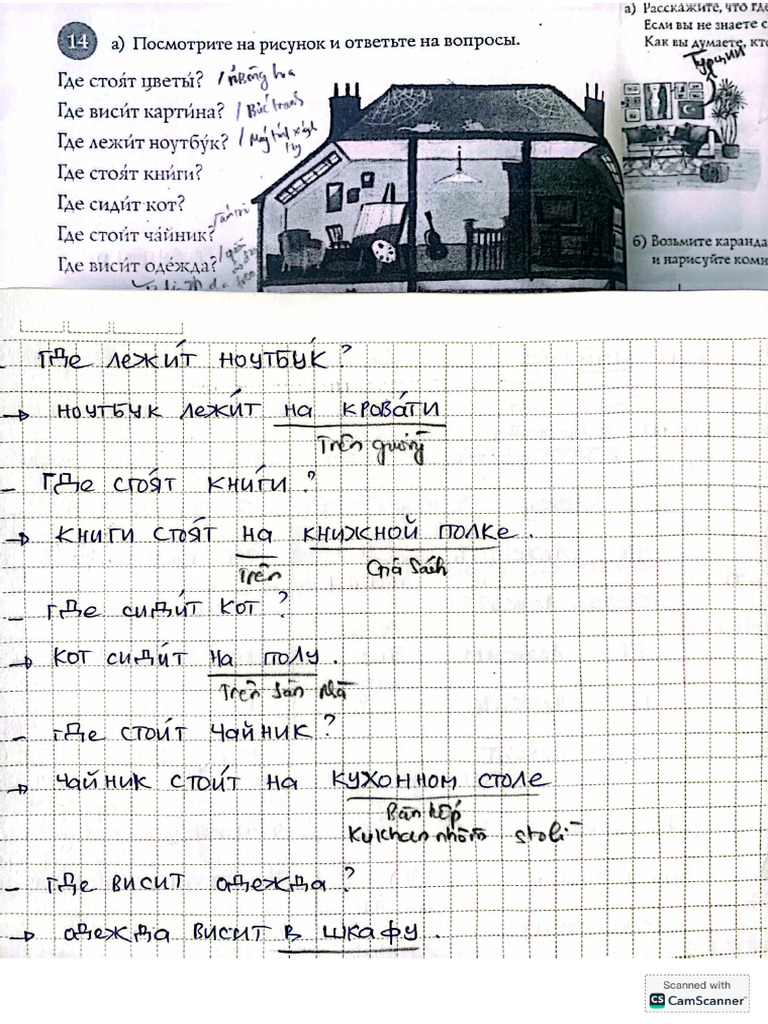 14 а) Посмотрите на рисунок и ответьте на вопросы.
Где стоя́т цветы́? / những hoa
Где виси́т карти́на? / Bức tranh
Где лежи́т ноутбу́к? / Máy tính xách tay
Где стоя́т кни́ги?
Где сиди́т кот?
Где стои́т ча́йник?
Где виси́т оде́жда?
а) Расскажите, что где
Если вы не знаете с
Как вы думаете, кто
Турции
б) Возьмите каранда
и нарисуйте комн
- Где лежи́т ноутбу́к?
→ ноутбук лежи́т на крова́ти
Trên giường
- Где стоя́т кни́ги?
→ книги стоя́т на книжной полке.
Trên Giá sách
- Где сиди́т кот?
→ кот сиди́т на полу.
Trên sàn nhà
- где стои́т чайник?
→ чайник стои́т на кухонном столе
Bàn bếp
- где висит одежда?
→ одежда висит в шкафу.
Scanned with
CS CamScanner